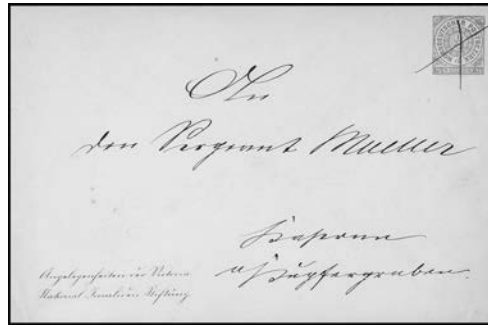 An
den Sergeant Mueller
Kaserne
a/Kupfergraben.
Angelegenheiten der Victoria
National-Invaliden Stiftung.